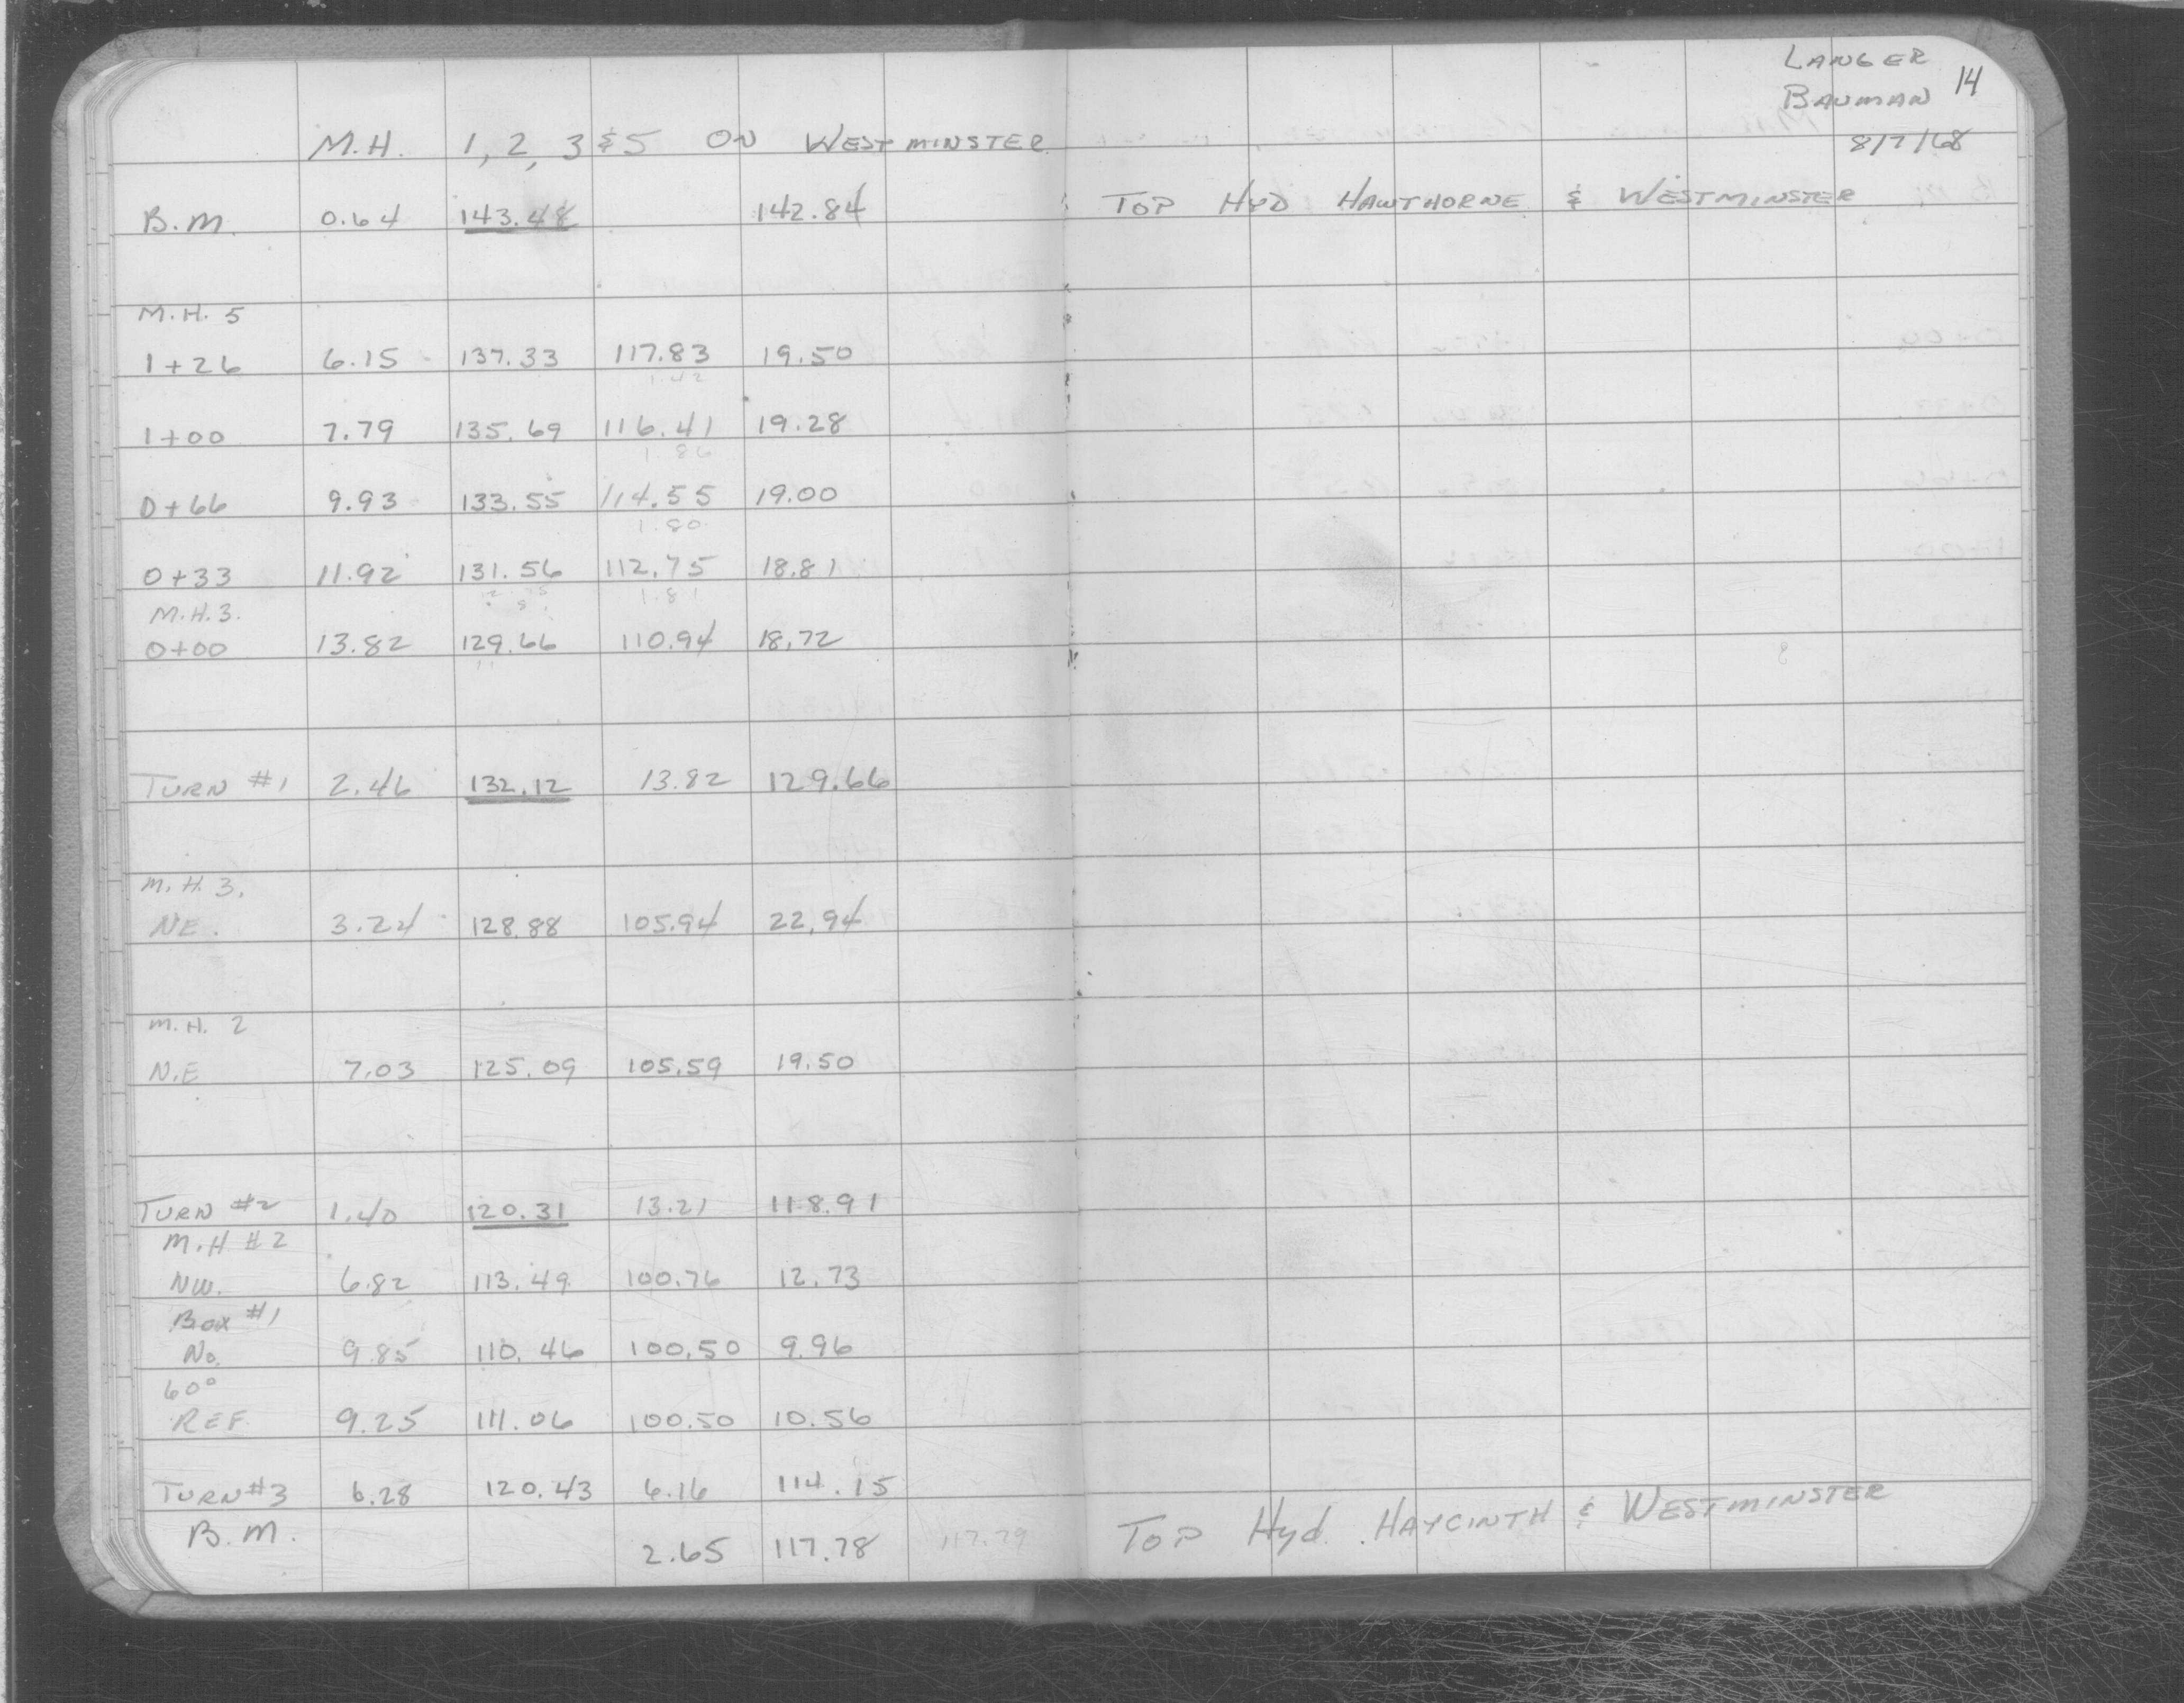 LANGER
BAUMAN 14
8/7/68
M.H. 1, 2, 3 & 5 ON WESTMINSTER
B.M. 0.64 143.48 142.84 TOP HYD HAWTHORNE & WESTMINSTER
M.H. 5
1+26 6.15 137.33 117.83 19.50
1.42
1+00 7.79 135.69 116.41 19.28
1.86
0+66 9.93 133.55 114.55 19.00
1.80
0+33 11.92 131.56 112.75 18.81
1.81
M.H.3.
0+00 13.82 129.66 110.94 18.72
TURN #1 2.46 132.12 13.82 129.66
M.H. 3.
NE. 3.24 128.88 105.94 22.94
M.H. 2
N.E 7.03 125.09 105.59 19.50
TURN #2 1.40 120.31 13.21 118.91
M.H #2
NW. 6.82 113.49 100.76 12.73
BOX #1
No. 9.85 110.46 100.50 9.96
60°
REF. 9.25 111.06 100.50 10.56
TURN #3 6.28 120.43 6.16 114.15
B.M. 2.65 117.78 117.79 TOP Hyd. HAYCINTH & WESTMINSTER